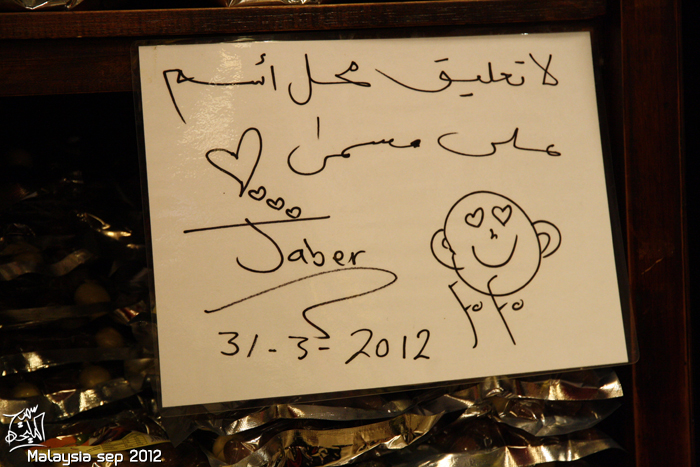 لا تعليق محل ائسم
على مسمى
Jaber
31-3-2012
Malaysia sep 2012